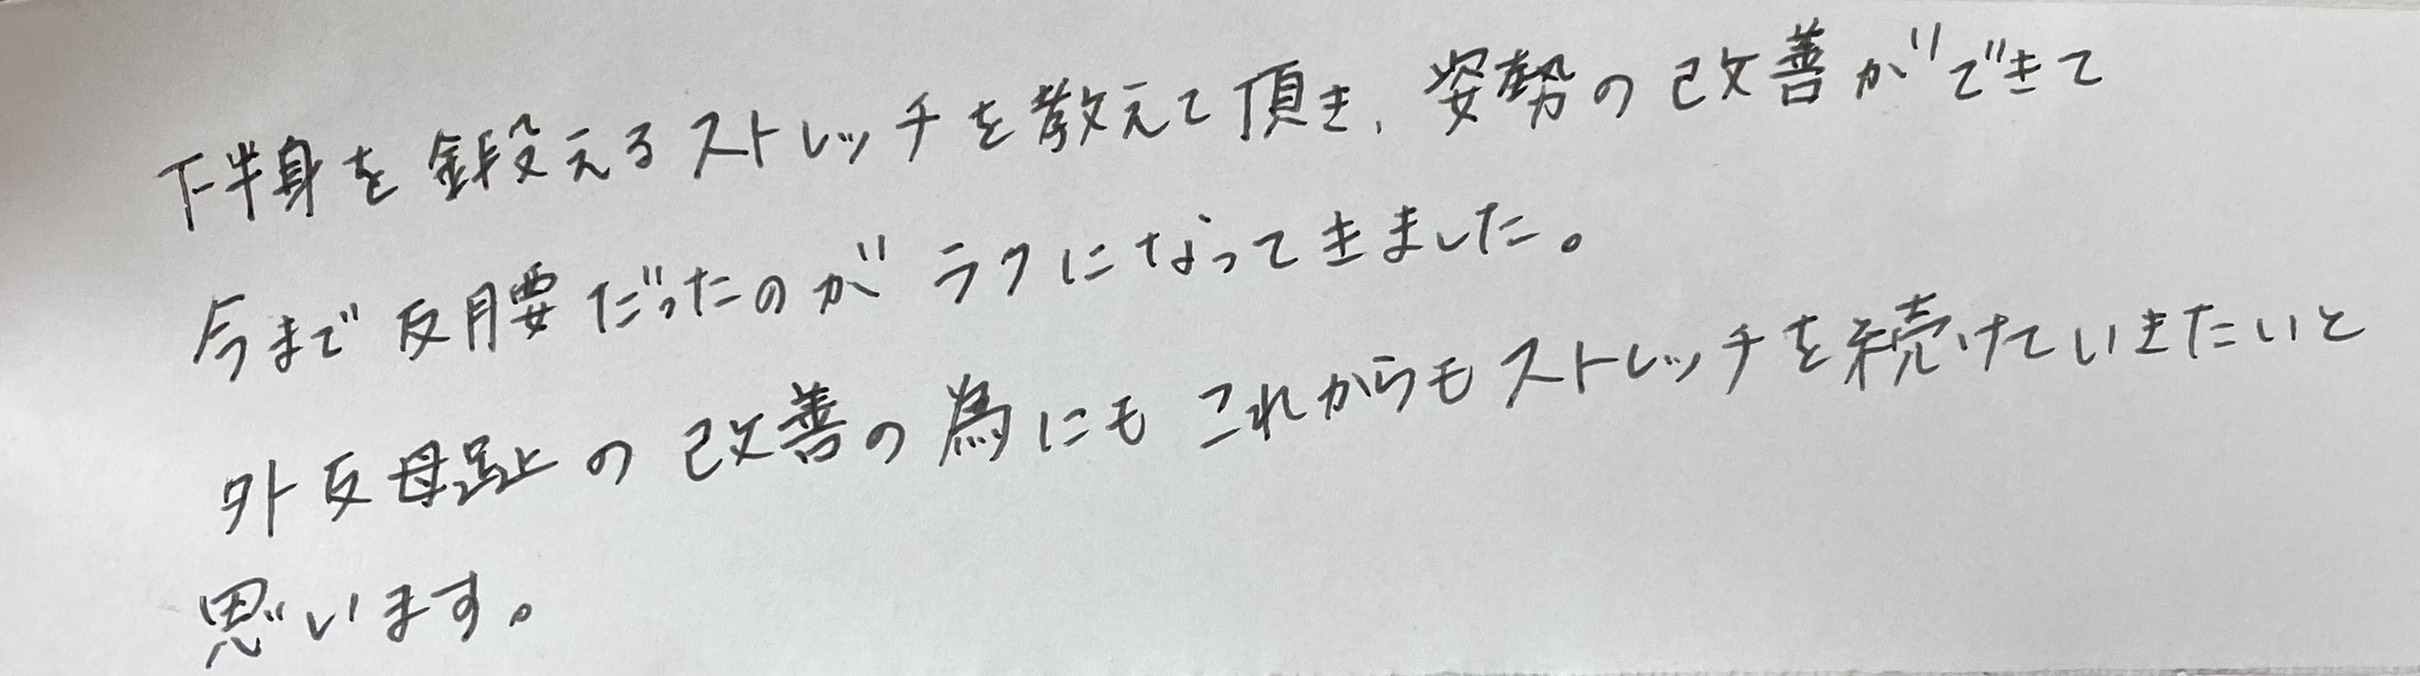 下半身を鍛えるストレッチを教えて頂き、姿勢の改善ができて
今まで反腰だったのがラクになってきました。
外反母趾の改善の為にもこれからもストレッチを続けていきたいと
思います。